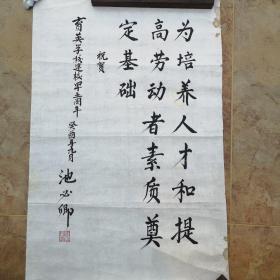 为培养人才和提
高劳动者素质奠
定基础
祝贺
育英学校建校四十五周年
癸酉年九月
池必卿